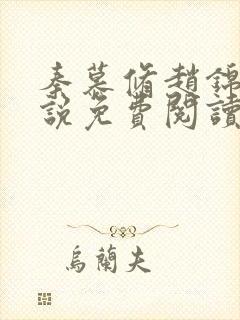 秦慕脩趙錦
說免費閱讀
烏蘭夫